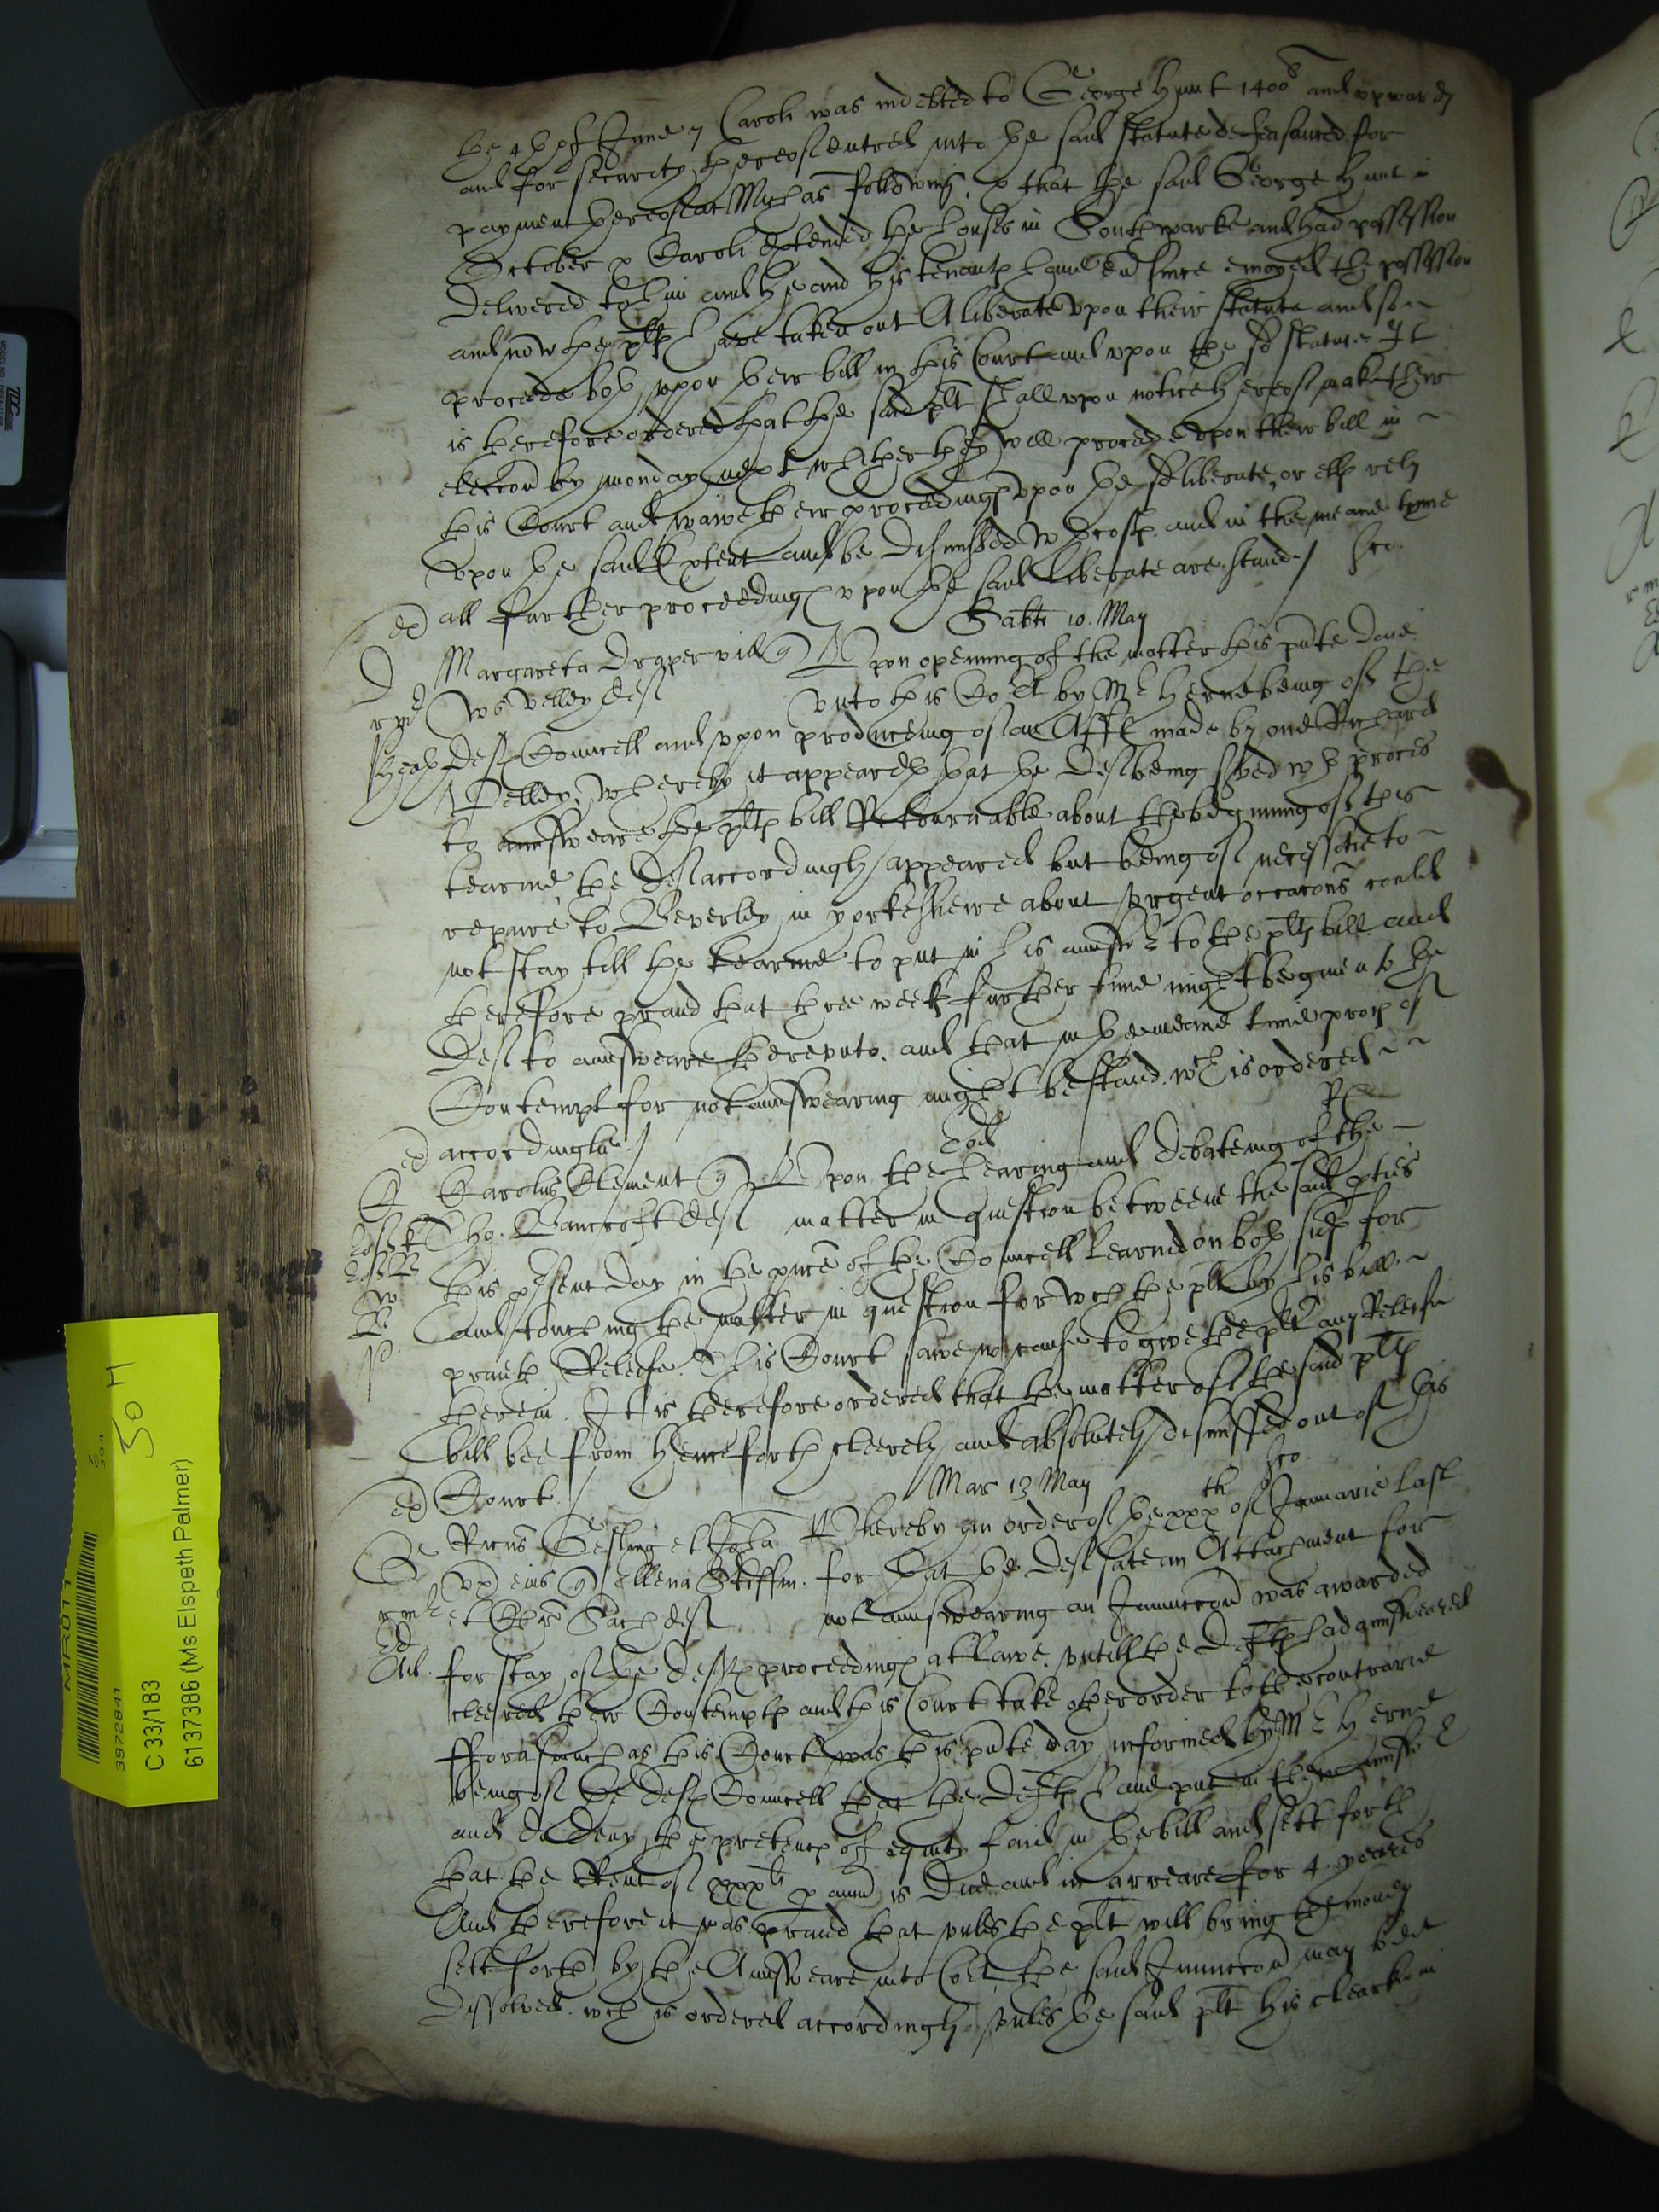 the 4th of June 7 Caroli was indebted to George Hunt 1400li and upwards
and for security thereof entred into the said statute defeasanced for
payment thereof at Michas following, & that the said George Hunt in
October x Caroli extended the houses in Southwarke and had possession
delivered to him and he and his tenants have ever since enioyed the possession
and now the plts have taken out A liberate upon their statute and so
proceede both upon their bill in this Court and upon the sd statute It
is therefore ordered that the said plt shall upon notice hereof make their
eleccon by monday next whether they will proceede upon their bill in
this Court and waive their proceedings upon the sd liberate, or els rely
upon the said Extent and be dismissed wth costs. and in the meane tyme
all further proceedings upon the said liberate are stand./
Sabti 10. May
Margareta Draper vid qr Upon opening of the matter this pnte daie
Welley def unto this Cort by Mr Herne being of the
defts Councell and upon produceing of an Afft made by one Richard
Pelley, whereby it appeareth that the def being served wth proces
to aunsweare the plts bill Retournable about the beginning of this
tearme, the def accordingly appeared but being of necessitie to
repaire to Beverley in yorkeshere about urgent occacons could
not stay till the tearme to put in his answr to the plts bill and
therefore praied that three weeks further time might be given to the
def to aunsweare thereunto. and that in the meane time proces of
Contempt for not aunswearing might be staied. wch is ordered
accordinglie./
Eod
Carolus Clement qr Upon the hearing and debateing of the
Tho. Bancroft def matter in question betweene the said pties
this present day in the pnce of the Councell learned on both sides for
and touching the matter in question for wch the plt by his bill
praieth Releife. This Court sawe no cause to give the plt any Releife
therein. It is therefore ordered that the matter of the said plts
bill bee from henceforth cleerely and absolutely dismissed out of this
Court./
Mar 13 May
Ricus Gesling et Joha Whereby an order of the xxxth of Januarie last
ux eius qr ellena Steffin. for that the def sate an Attachment for
et def not aunswearing an Iniunccon was awarded
for stay of the defts proceedings att lawe. untill the Defts had aunsweared
cleered their Contempts and this Court take other order to the contrarie
fforasmuch as this Court was this pnte day informed by Mr Herne
being of the defts Councell that the Defts have put in their answr
and do deny the pretences of equity laid in the bill and sett forth
that the Rent of xxxli p ann is due and in arreare for 4 yeeres
And therefore it was praied that unles the plt will bring the money
sett forth by the Aunsweare into Cort the said Iniunccon may bee
dissolved. wch is ordered accordingly unles the said plt his clearke in
MR011
3972841
C 33/183
6137386 (Ms Elspeth Palmer)
50 H